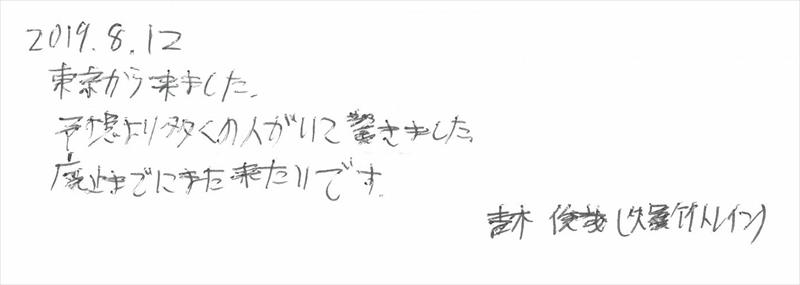 2019.8.12
東京から来ました。
予想より多くの人がいて驚きました
廃止までにまた来たいです。
青木 俊哉(爆竹トレイン)